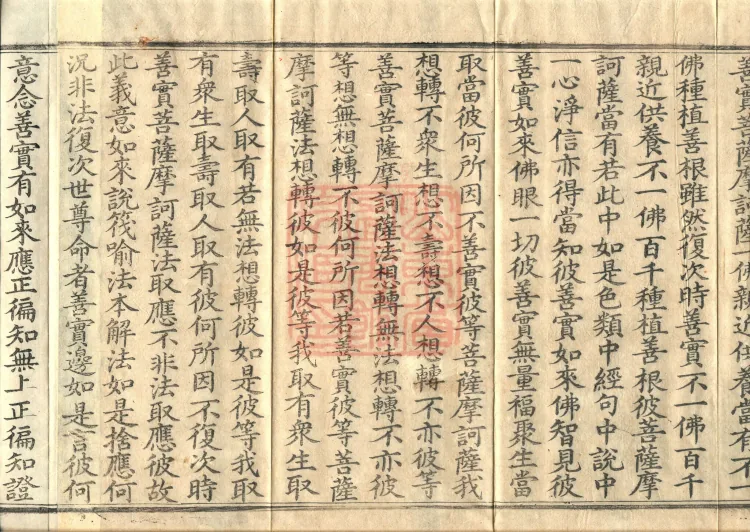 善實菩薩摩訶薩一佛親近供養當有不一
佛種植善根雖然復次時善實不一佛百千
親近供養不一佛百千種植善根彼菩薩摩
訶薩當有若此中如是色類中經句中說中
一心淨信亦得當知彼善實如來佛智見彼
善實如來佛眼一切彼善實無量福聚生當
取當彼何所因不善實彼等菩薩摩訶薩我
想轉不衆生想不壽想不人想轉不亦彼等
善實菩薩摩訶薩法想轉無法想轉不亦彼
等想無想轉不彼何所因若善實彼等菩薩
摩訶薩法想轉彼如是彼等我取有衆生取
壽取人取有若無法想轉彼如是彼等我取
有衆生取壽取人取有彼何所因不復次時
善實菩薩摩訶薩法取應不非法取應彼故
此義意如來說筏喻法本解法如是捨應何
況非法復次世尊命者善實邊如是言彼何
意念善實有如來應正徧知無上正徧知證